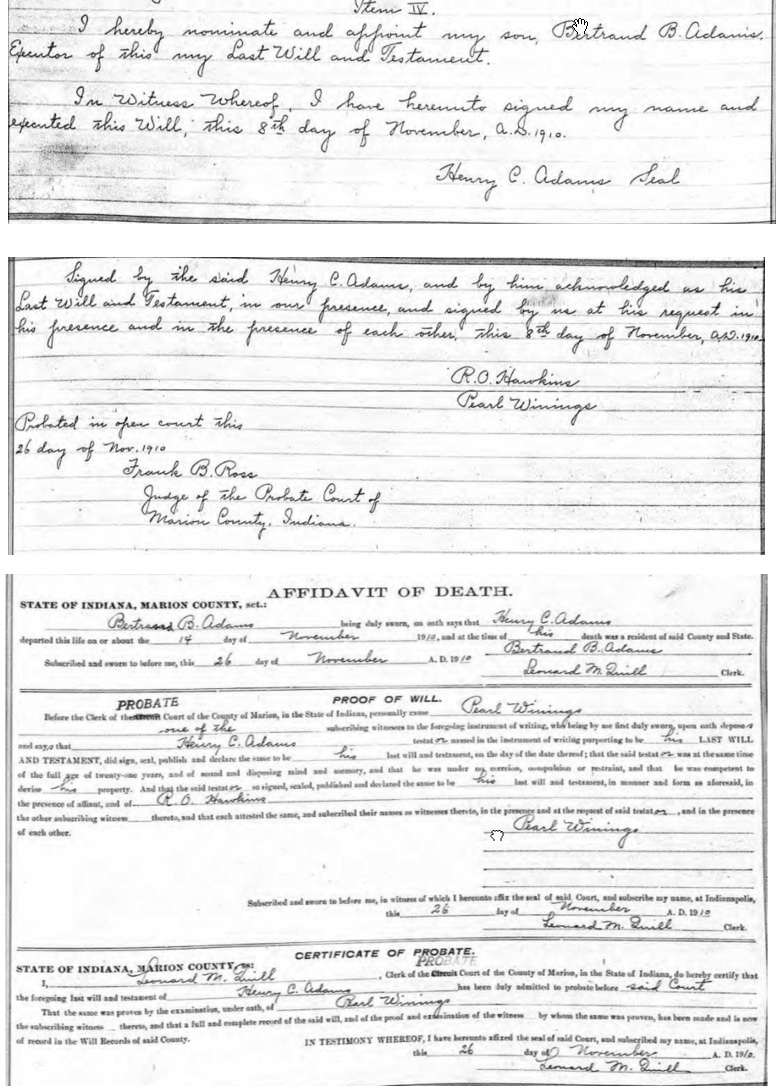 Item IV.
I hereby nominate and appoint my son, Bertrand B. Adams,
Executor of this my Last Will and Testament.
In Witness Whereof, I have hereunto signed my name and
executed this Will, this 8th day of November, A.D. 1910.
Henry C. Adams Seal
Signed by the said Henry C. Adams, and by him acknowledged as his
Last Will and Testament, in our presence, and signed by us at his request in
his presence and in the presence of each other, this 8th day of November, A.D. 1910.
R.O. Hawkins
Pearl Winings
Probated in open court this
26 day of Nov. 1910
Frank B. Ross
Judge of the Probate Court of
Marion County, Indiana.
AFFIDAVIT OF DEATH.
STATE OF INDIANA, MARION COUNTY, sct.:
Bertrand B. Adams being duly sworn, on oath says that Henry C. Adams
departed this life on or about the 14 day of November 1910, and at the time of his death was a resident of said County and State.
Bertrand B. Adams
Subscribed and sworn to before me, this 26 day of November A. D. 1910
Leonard M. Quill Clerk.
PROOF OF WILL.
PROBATE
Before the Clerk of the Circuit Court of the County of Marion, in the State of Indiana, personally came Pearl Winings
one of the subscribing witnesses to the foregoing instrument of writing, who being by me first duly sworn, upon oath deposes
and says that Henry C. Adams testator named in the instrument of writing purporting to be his LAST WILL
AND TESTAMENT, did sign, seal, publish and declare the same to be his last will and testament, on the day of the date thereof; that the said testator was at the same time
of the full age of twenty-one years, and of sound and disposing mind and memory, and that he was under no coercion, compulsion or restraint, and that he was competent to
devise his property. And that the said testator so signed, sealed, published and declared the same to be his last will and testament, in manner and form as aforesaid, in
the presence of affiant, and of R. O. Hawkins
the other subscribing witness thereto, and that each attested the same, and subscribed their names as witnesses thereto, in the presence and at the request of said testator, and in the presence
of each other.
Pearl Winings
Subscribed and sworn to before me, in witness of which I hereunto affix the seal of said Court, and subscribe my name, at Indianapolis,
this 26 day of November A. D. 1910
Leonard M. Quill Clerk.
CERTIFICATE OF PROBATE.
PROBATE
STATE OF INDIANA, MARION COUNTY, ss:
I, Leonard M. Quill, Clerk of the Circuit Court of the County of Marion, in the State of Indiana, do hereby certify that
the foregoing last will and testament of Henry C. Adams has been duly admitted to probate before said Court
That the same was proven by the examination, under oath, of Pearl Winings
the subscribing witness thereto, and that a full and complete record of the said will, and of the proof and examination of the witness by whom the same was proven, has been made and is now
of record in the Will Records of said County.
IN TESTIMONY WHEREOF, I have hereunto affixed the seal of said Court, and subscribed my name, at Indianapolis,
this 26 day of November A. D. 1910.
Leonard M. Quill Clerk.